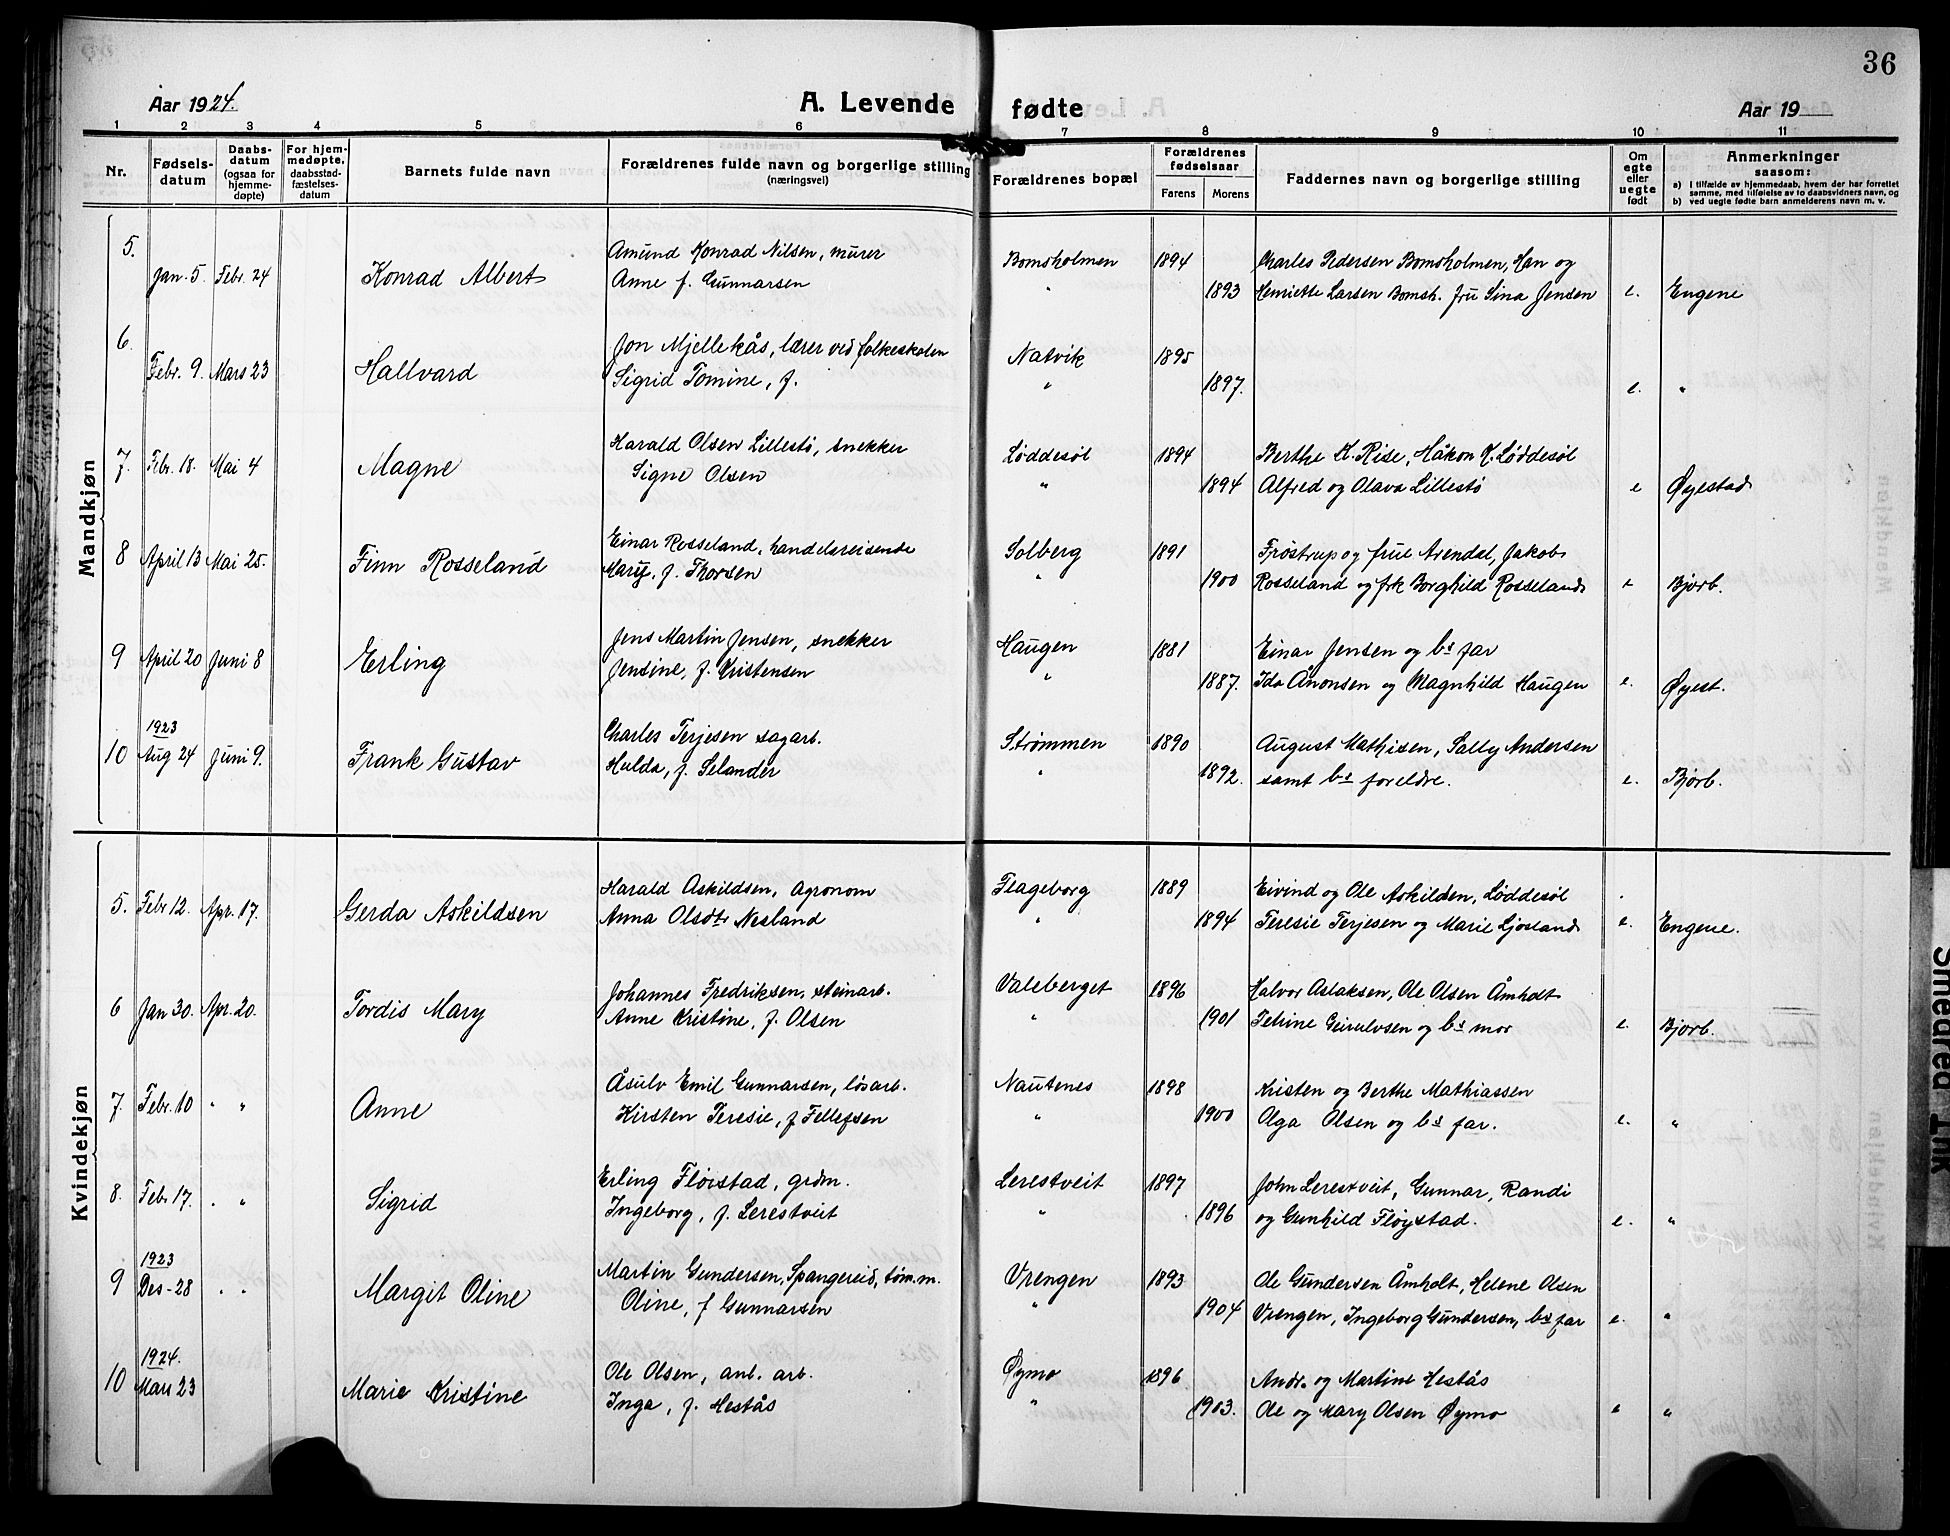 36
Aar 1924.
A. Levende fødte
Aar 19
1 2 3 4 5 6 7 8 9 10 11
Nr.
Fødsels-
datum
Daabs-
datum
(ogsaa for
hjemme-
døpte)
For hjem-
medøpte,
daabsstad-
fæstelses-
datum
Barnets fulde navn
Forældrenes fulde navn og borgerlige stilling
(næringsvei)
Forældrenes bopæl
Forældrenes
fødselsaar
Farens Morens
Faddernes navn og borgerlige stilling
Om
egte
eller
uegte
født
Anmerkninger
saasom:
a) I tilfælde av hjemmedaab, hvem der har forrettet
samme, med tilføielse av to daabsvidners navn, og
b) ved uegte fødte barn anmelderens navn m. v.
Mandkjøn
5. Amund Konrad Nilsen, murer Bomsholmen 1894 Charles Pedersen Bomsholmen, Han og
Jan. 5 Febr. 24 Konrad Albert Anne f. Gunnarsen " 1893 Henriette Larsen Bomsh. fru Sina Jensen e. Engene
6. Jon Mjellekås, lærer ved folkeskolen Natvik 1895
Febr. 9. Mars 23 Hallvard Sigrid Tomine, f. " 1897. e. "
7. Febr. 18. Mai 4 Magne Harald Olsen Lillestø, snekker Løddesøl 1894 Berthe K. Rise, Håkon K. Løddesøl
Signe Olsen " 1894 Alfred og Olava Lillestø e Øyestad
8 April 13 Mai 25. Finn Rosseland Einar Rosseland, handelsreisende Solberg 1891 Frøstrup og frue Arendal, Jakob
Mary, f. Thorsen " 1900 Rosseland og frk Borghild Rosseland e Bjorb.
9 April 20 Juni 8 Erling Jens Martin Jensen, snekker Haugen 1881 Einar Jensen og bs far
Jensine, f. Kristensen " 1887. Ida Ånonsen og Magnhild Haugen e. Øyest.
1923
10 Aug 24 Juni 9. Frank Gustav Charles Terjesen sagarb. Strømmen 1890 August Mathisen, Sally Andersen
Hulda, f. Selander " 1892. samt bs foreldre. e. Bjorb.
Kvindekjøn
5. Febr 12. Apr. 17. Gerda Askildsen Harald Askildsen, Agronom Flageborg 1889 Eivind og Ole Askildsen, Løddesøl
Anna Olsdtr Nesland " 1894 Teresie Terjesen og Marie Ljosland e. Engene.
6 Jan 30. Apr. 20. Tordis Mary Johannes Fredriksen, steinarb. Valeberget 1896 Halvor Aslaksen, Ole Olsen Åmholt
Anne Kristine, f. Olsen " 1901 Petrine Geirulvsen og bs mor e. Bjorb.
7. Febr. 10 " " Anne Åsulv Emil Gunnarsen, løsarb. Nautenes 1898 Kristen og Berthe Mathiassen
Kirsten Teresie, f Tellefsen " 1900 Olga Olsen og bs far. e. "
8. Febr 17. " " Sigrid Erling Fløistad, grdm. Lerestveit 1897 John Lerestveit, Gunnar, Randi
Ingeborg, f. Lerestveit " 1896 og Gunhild Fløystad. e. "
1923
9 Des-28 " " Margit Oline Martin Gundersen, Spangereid, tøm.m. Vrengen 1893 Ole Gundersen Åmholt, Helene Olsen
Oline, f Gunnarsen " 1904 Vrengen, Ingeborg Gundersen, bs far e. "
1924.
10 Mars 23 Marie Kristine Ole Olsen, anl. arb. Øymo 1896 Andr. og Martine Hestås
Inga, f. Hestås " 1903. Ole og Mary Olsen Øymo e "
Smeared Ink